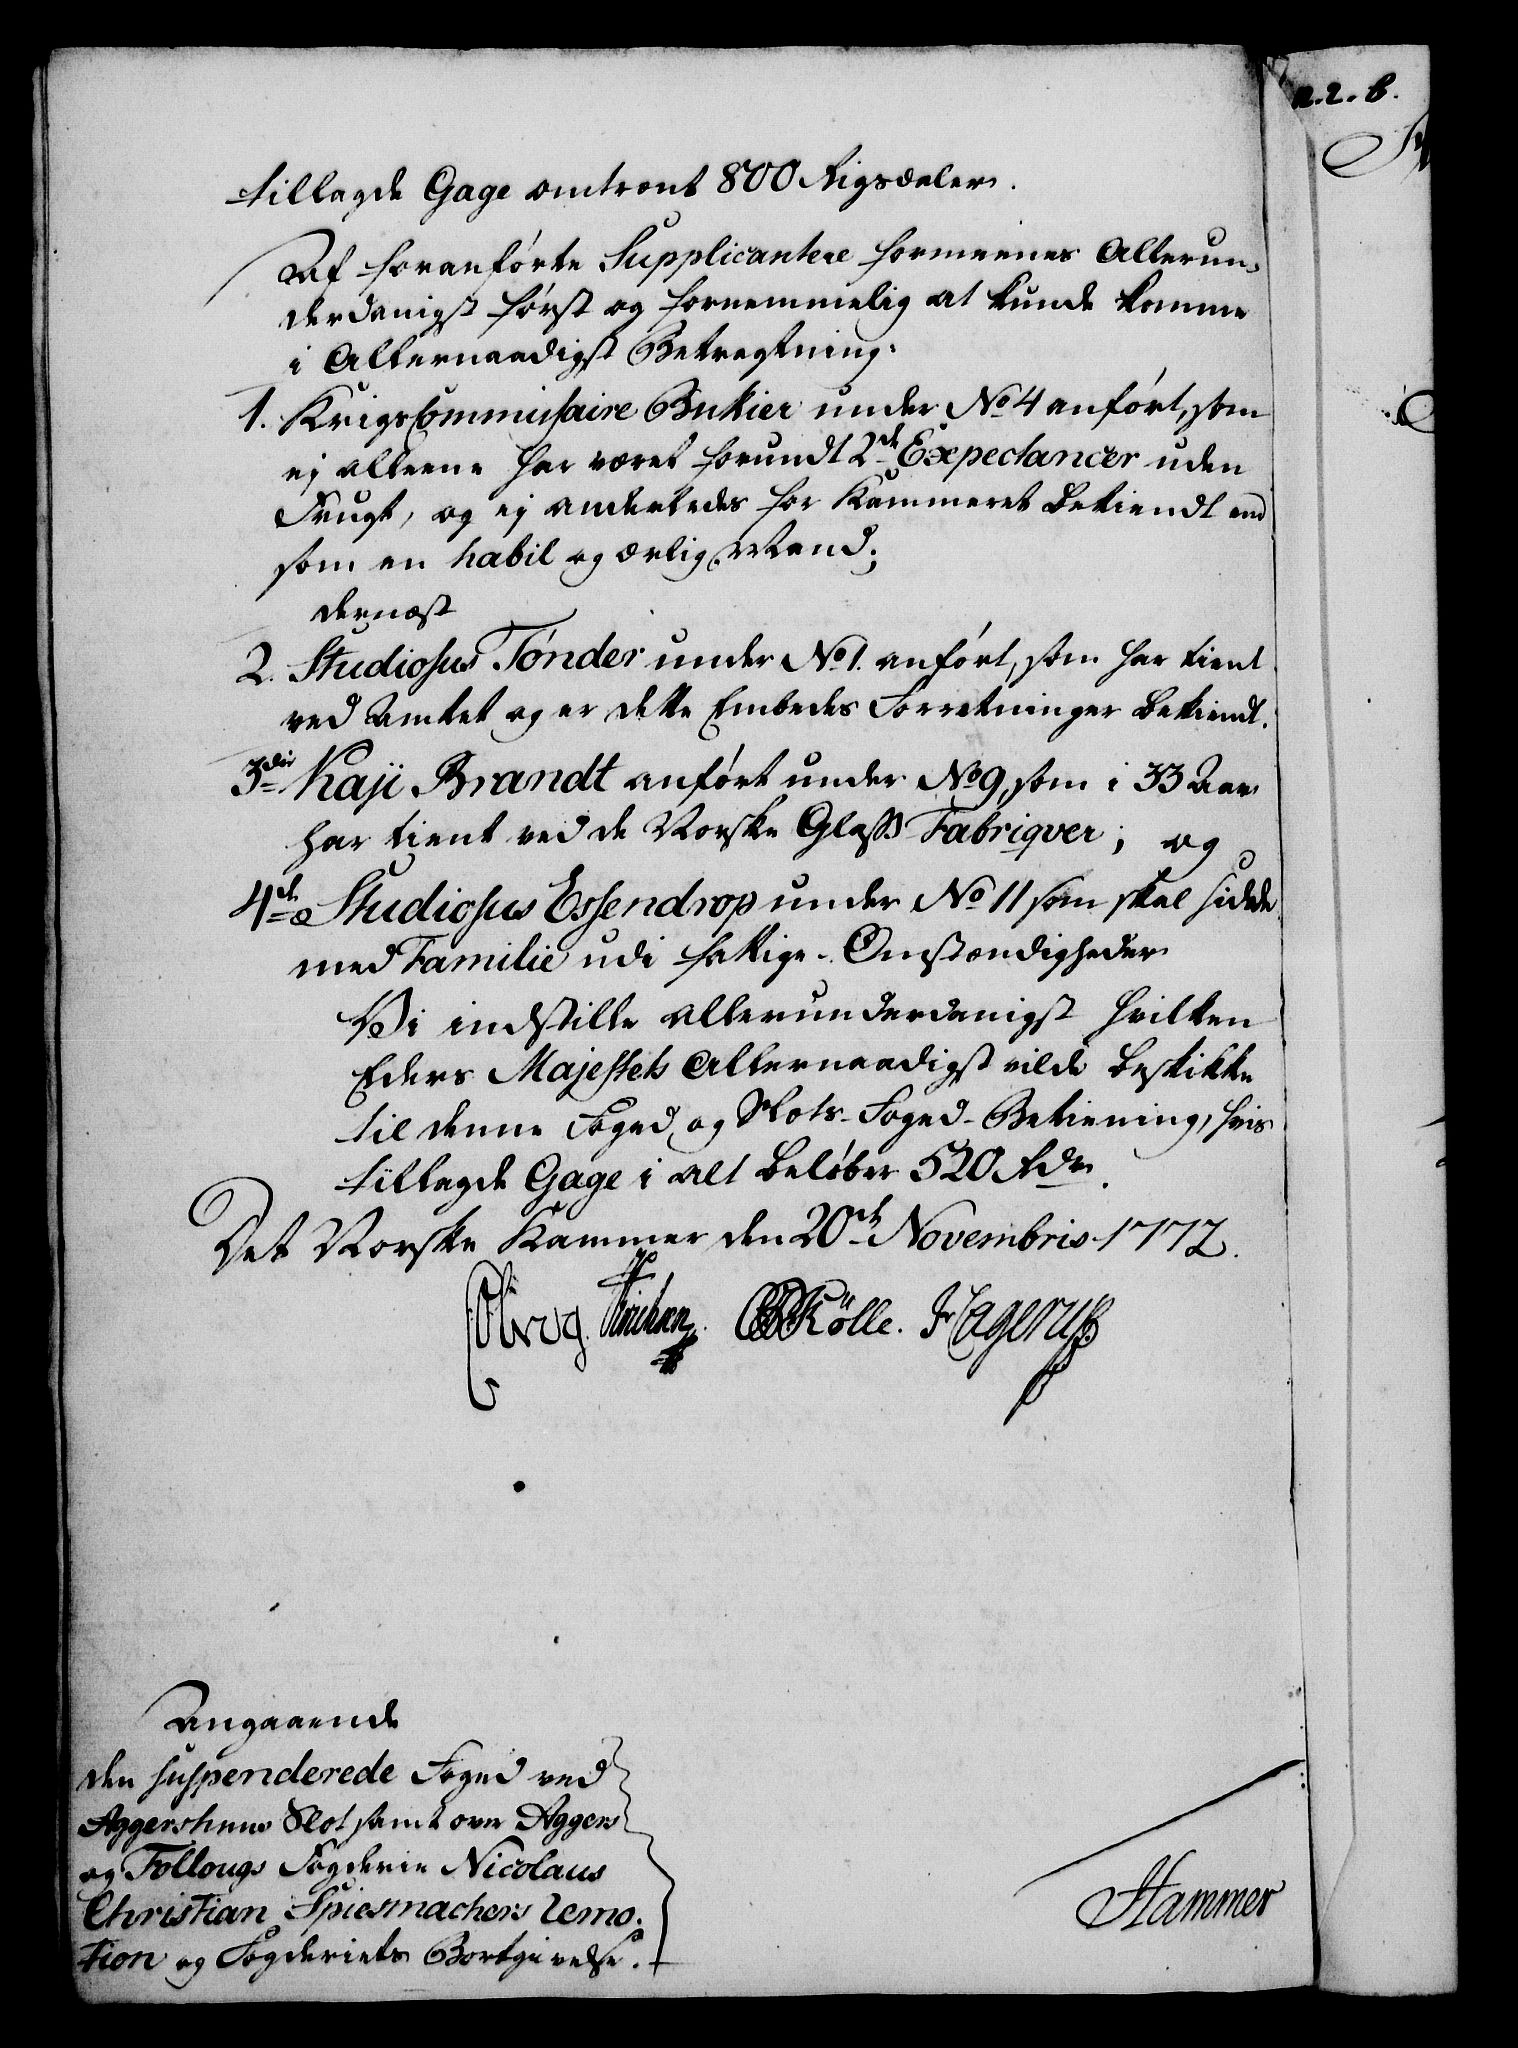 n.2.b.
tillagde Gage omtrent 800 Rigsdaler.
Af foranførte Supplicantere formeenes Allerun-
derdanigst først og fornemmelig at kunde komme
i Allernaadigst Betragtning:
1. KrigsCommissaire Bukier under No 4 anført, som
ej alleene har været forundt 2de Expectancer uden
Frugt, og ej anderledes for Kammeret bekiendt end
som en habil og ærlig Mand;
dernæst
2. Studiosus Tønder under No 1. anført, som har tient
ved Amtet og er dette Embedes Forretninger bekiendt.
3die Kaji Brandt anført under No 9, som i 33 Aar
har tient ved de Norske Glass Fabriqver; og
4de Studiosus Essendrop under No 11 som skal sidde
med Familie udi fattige Omstændigheder
Vi indstille allerunderdanigst hvilken
Eders Majestets Allernaadigst vilde beskikke
til denne Foged og Slots-Foged-Betiening, hvis
tillagde Gage i alt beløber 520 Rdr.
Det Norske Kammer den 20de Novembris 1772.
Kölle. Hagerup
Angaaende
den suspenderede Foged ved
Aggershuus Slot samt over Aggers
og Follougs Fogderie Nicolaus
Christian Spiesmachers remo-
tion og Fogderiets Bortgivelse.
Hammer